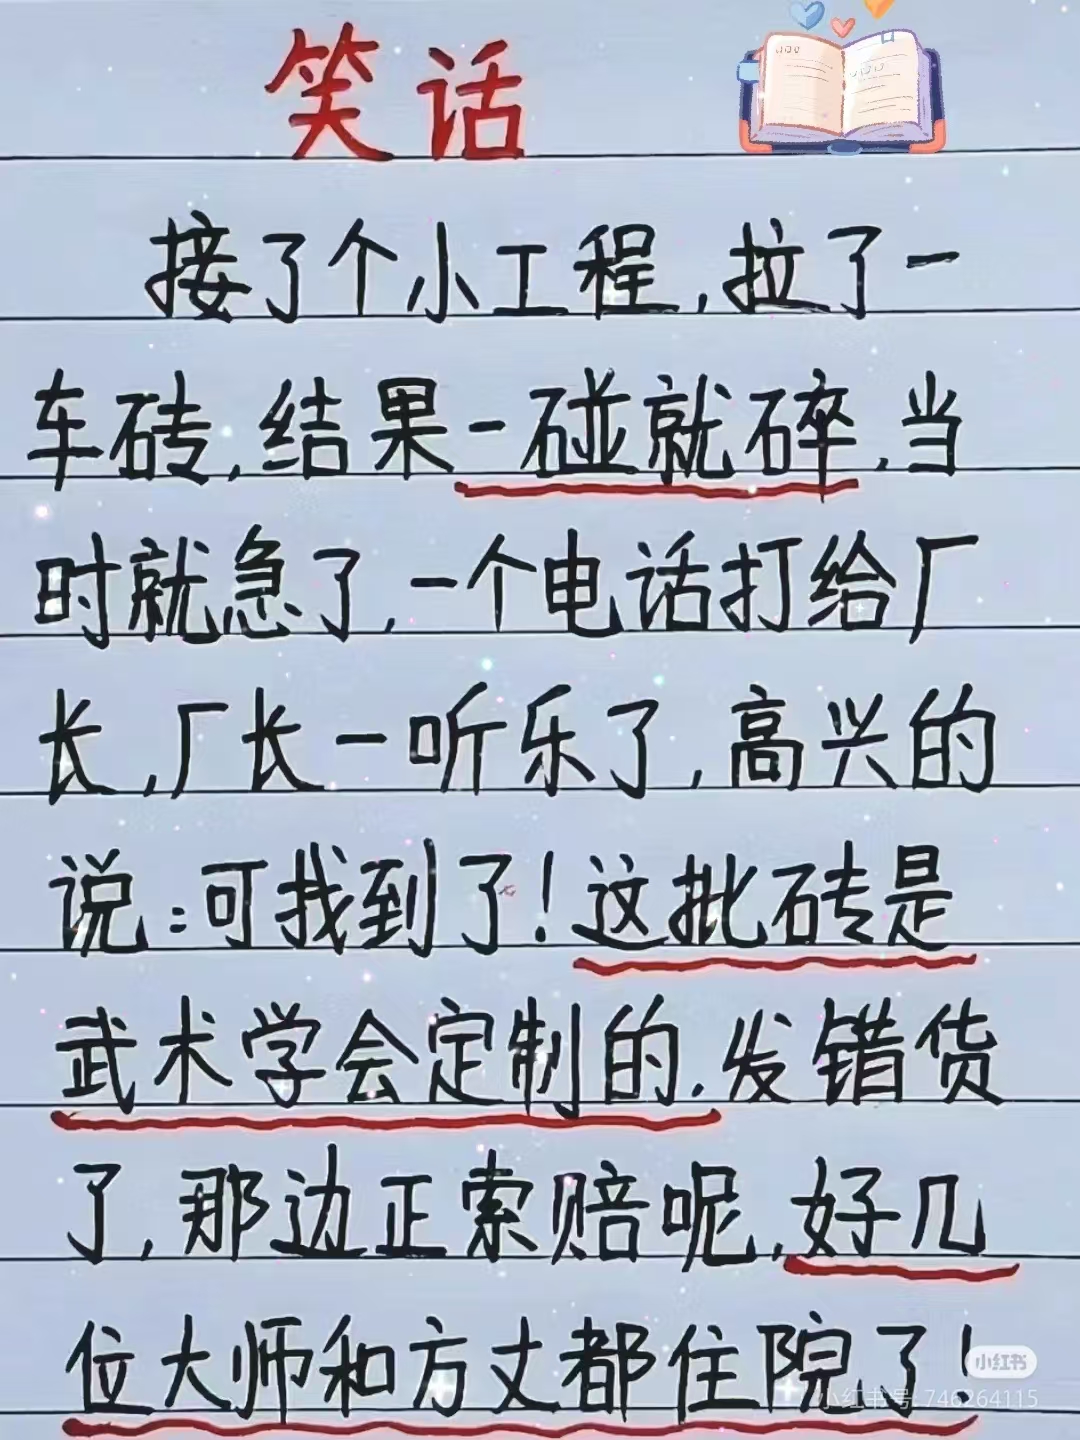 笑话
接了个小工程,拉了一
车砖,结果一碰就碎,当
时就急了,一个电话打给厂
长,厂长一听乐了,高兴的
说:可找到了!这批砖是
武术学会定制的.发错货
了,那边正索赔呢,好几
位大师和方丈都住院了!
小红书
小红书号:746264115